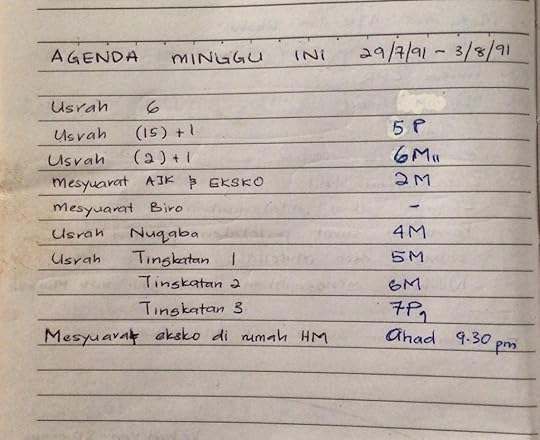 AGENDA MINGGU INI 29/7/91 - 3/8/91
Usrah 6
Usrah (15) + 1 5P
Usrah (2) + 1 6M11
Mesyuarat AJK & EKSKO 2M
Mesyuarat Biro -
Usrah Nuqaba 4M
Usrah Tingkatan 1 5M
Tingkatan 2 6M
Tingkatan 3 7P9
Mesyuarat eksko di rumah HM Ahad 9.30 pm